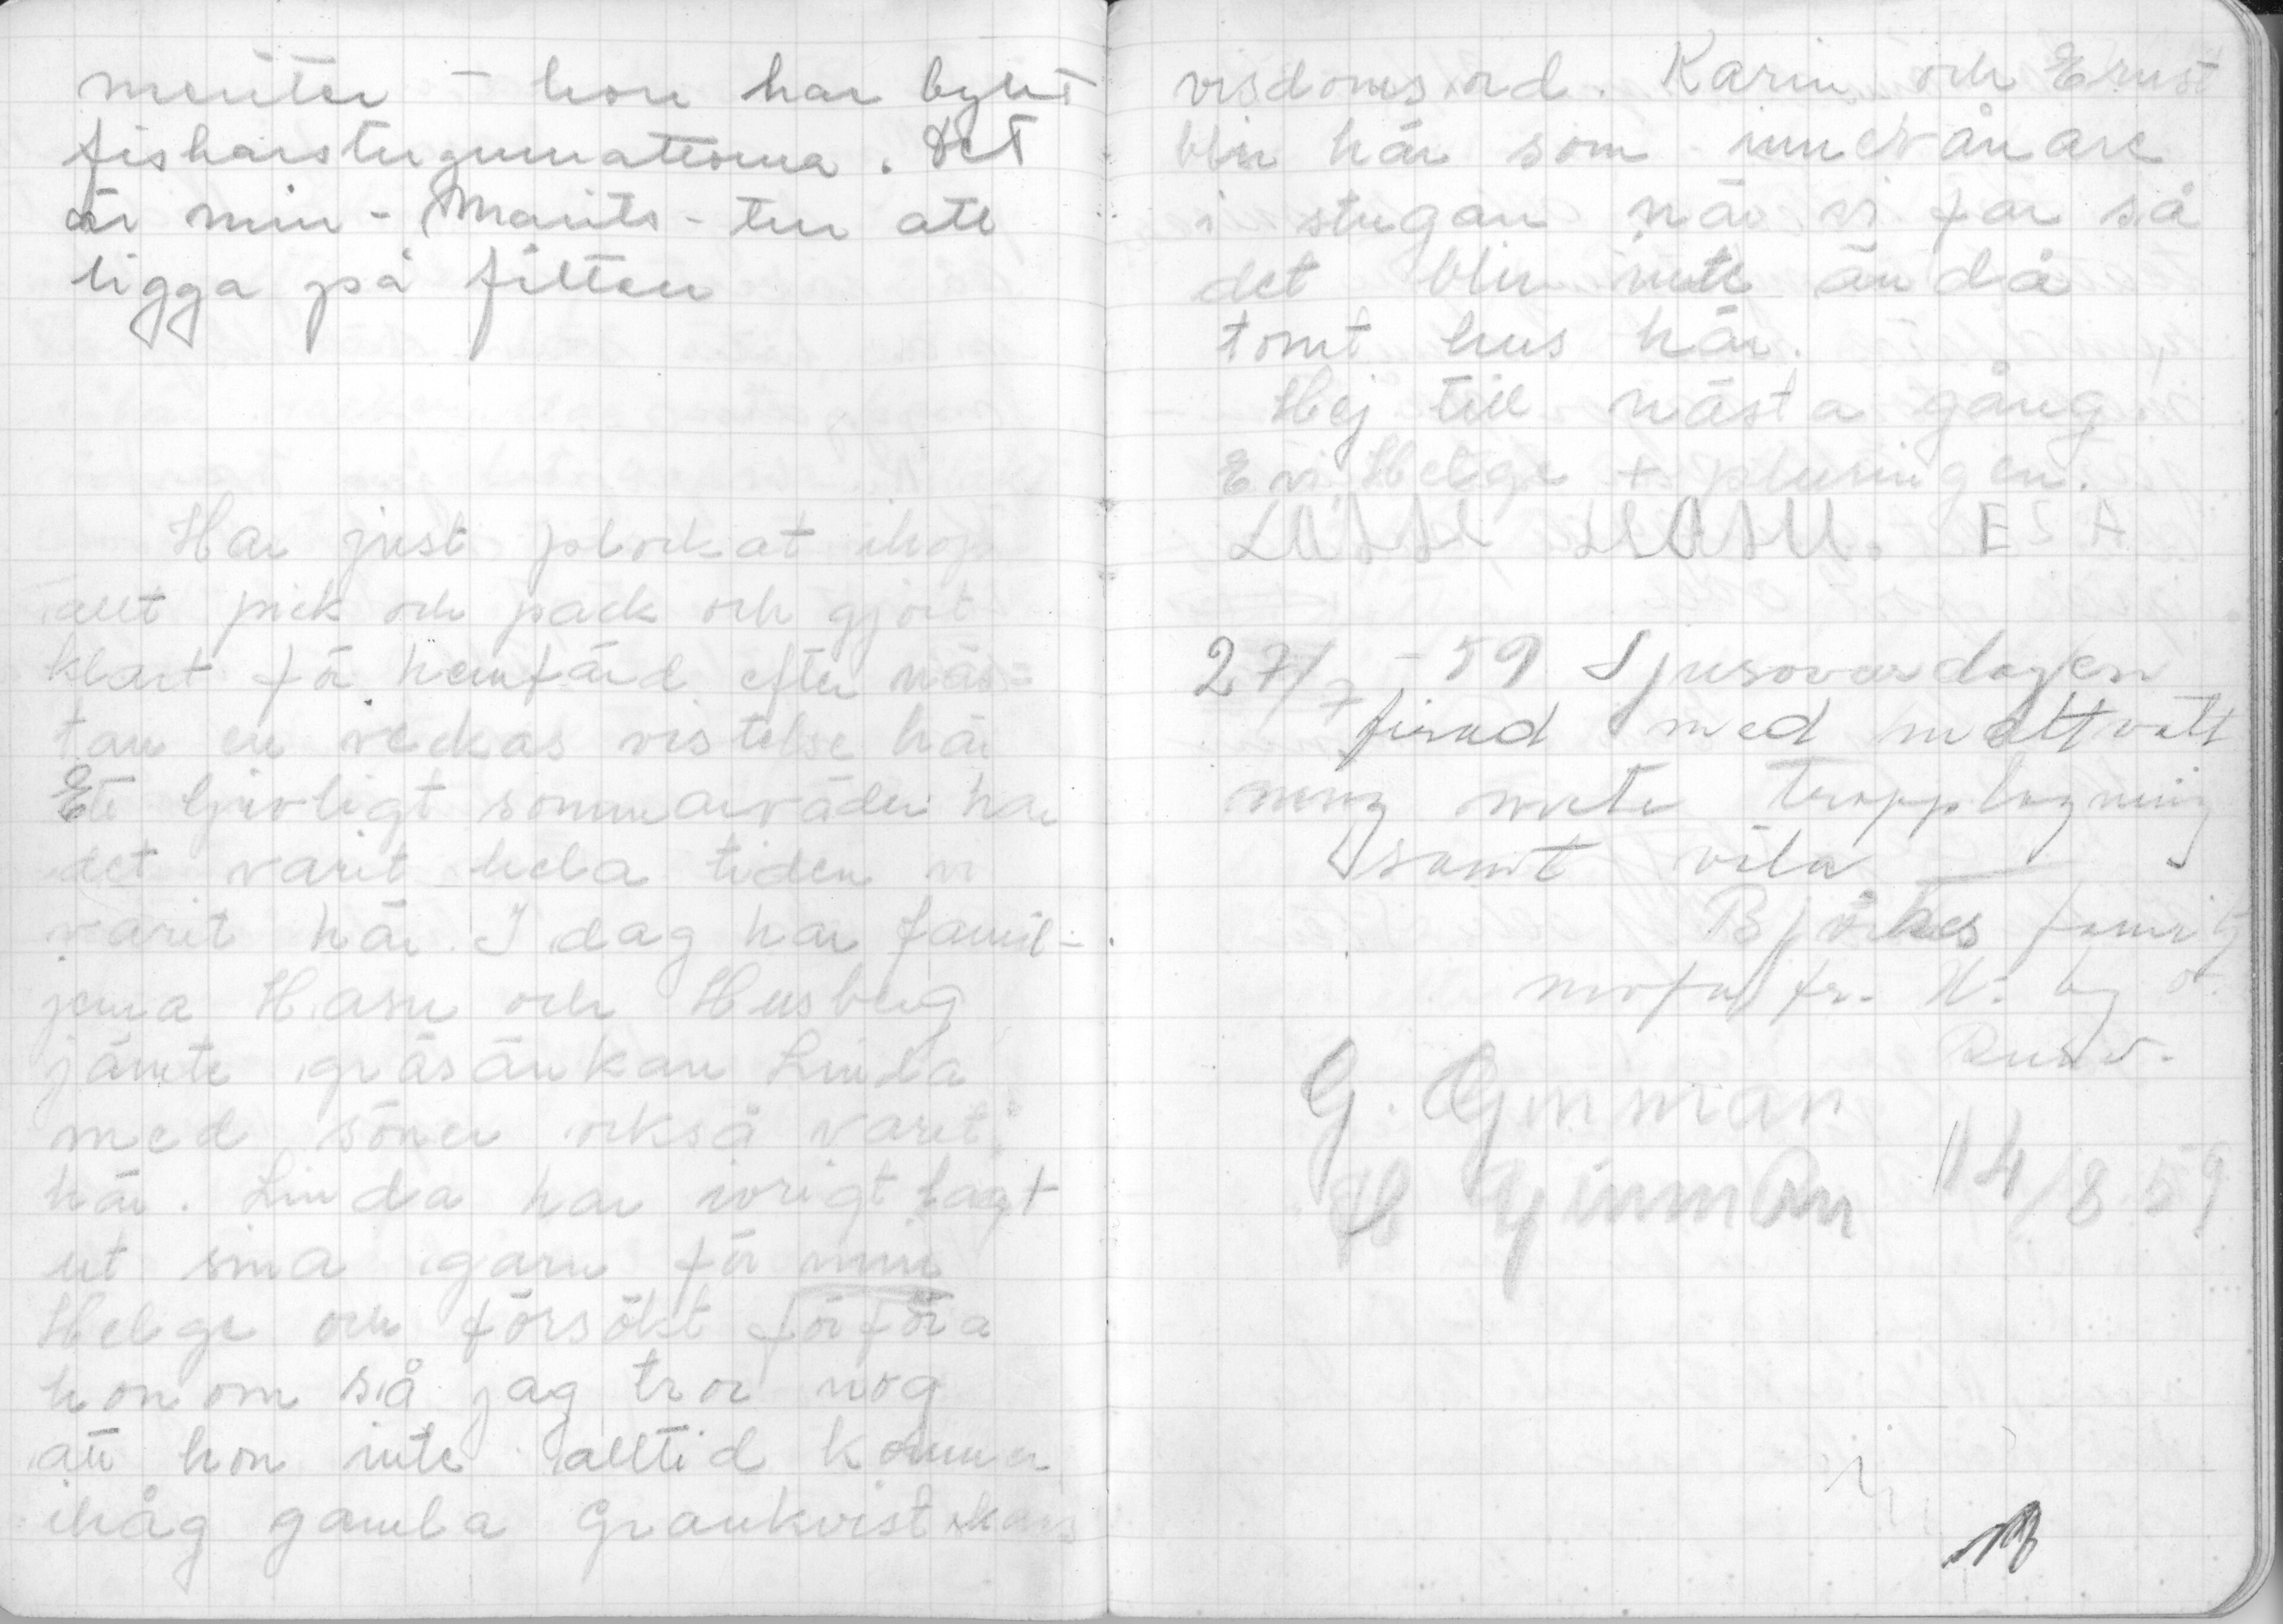 menter – hon har bykt
fiskarstugumattorna. Det
är min - Marits - tur att
ligga på filten
Har just plockat ihop
allt pick och pack och gjort
klart för hemfärd efter näs-
tan en veckas vistelse här
Ett ljuvligt sommarväder har
det varit hela tiden vi
varit här. I dag har famil-
jerna Hasu och Husberg
jämte gräsänkan Linda
med söner också varit
här. Linda har ivrigt lagt
ut sina garn för min
Helge och försökt förföra
honom så jag tror nog
att hon inte alltid kommer
ihåg gamla Grankvistskans
visdomsord. Karin och Ernst
blir här som innevånare
i stugan när vi far så
det blir inte ändå
tomt hus här.
Hej till nästa gång.
Evi, Helge + pluringen.
LASSE HASU. ESA
27/7 -59 Sjusovardagen
firad med mattvätt
ning trapplagning
samt vila
Björkes familj
mofa fr. H:
G. Ginman
H Ginman 14/8 59